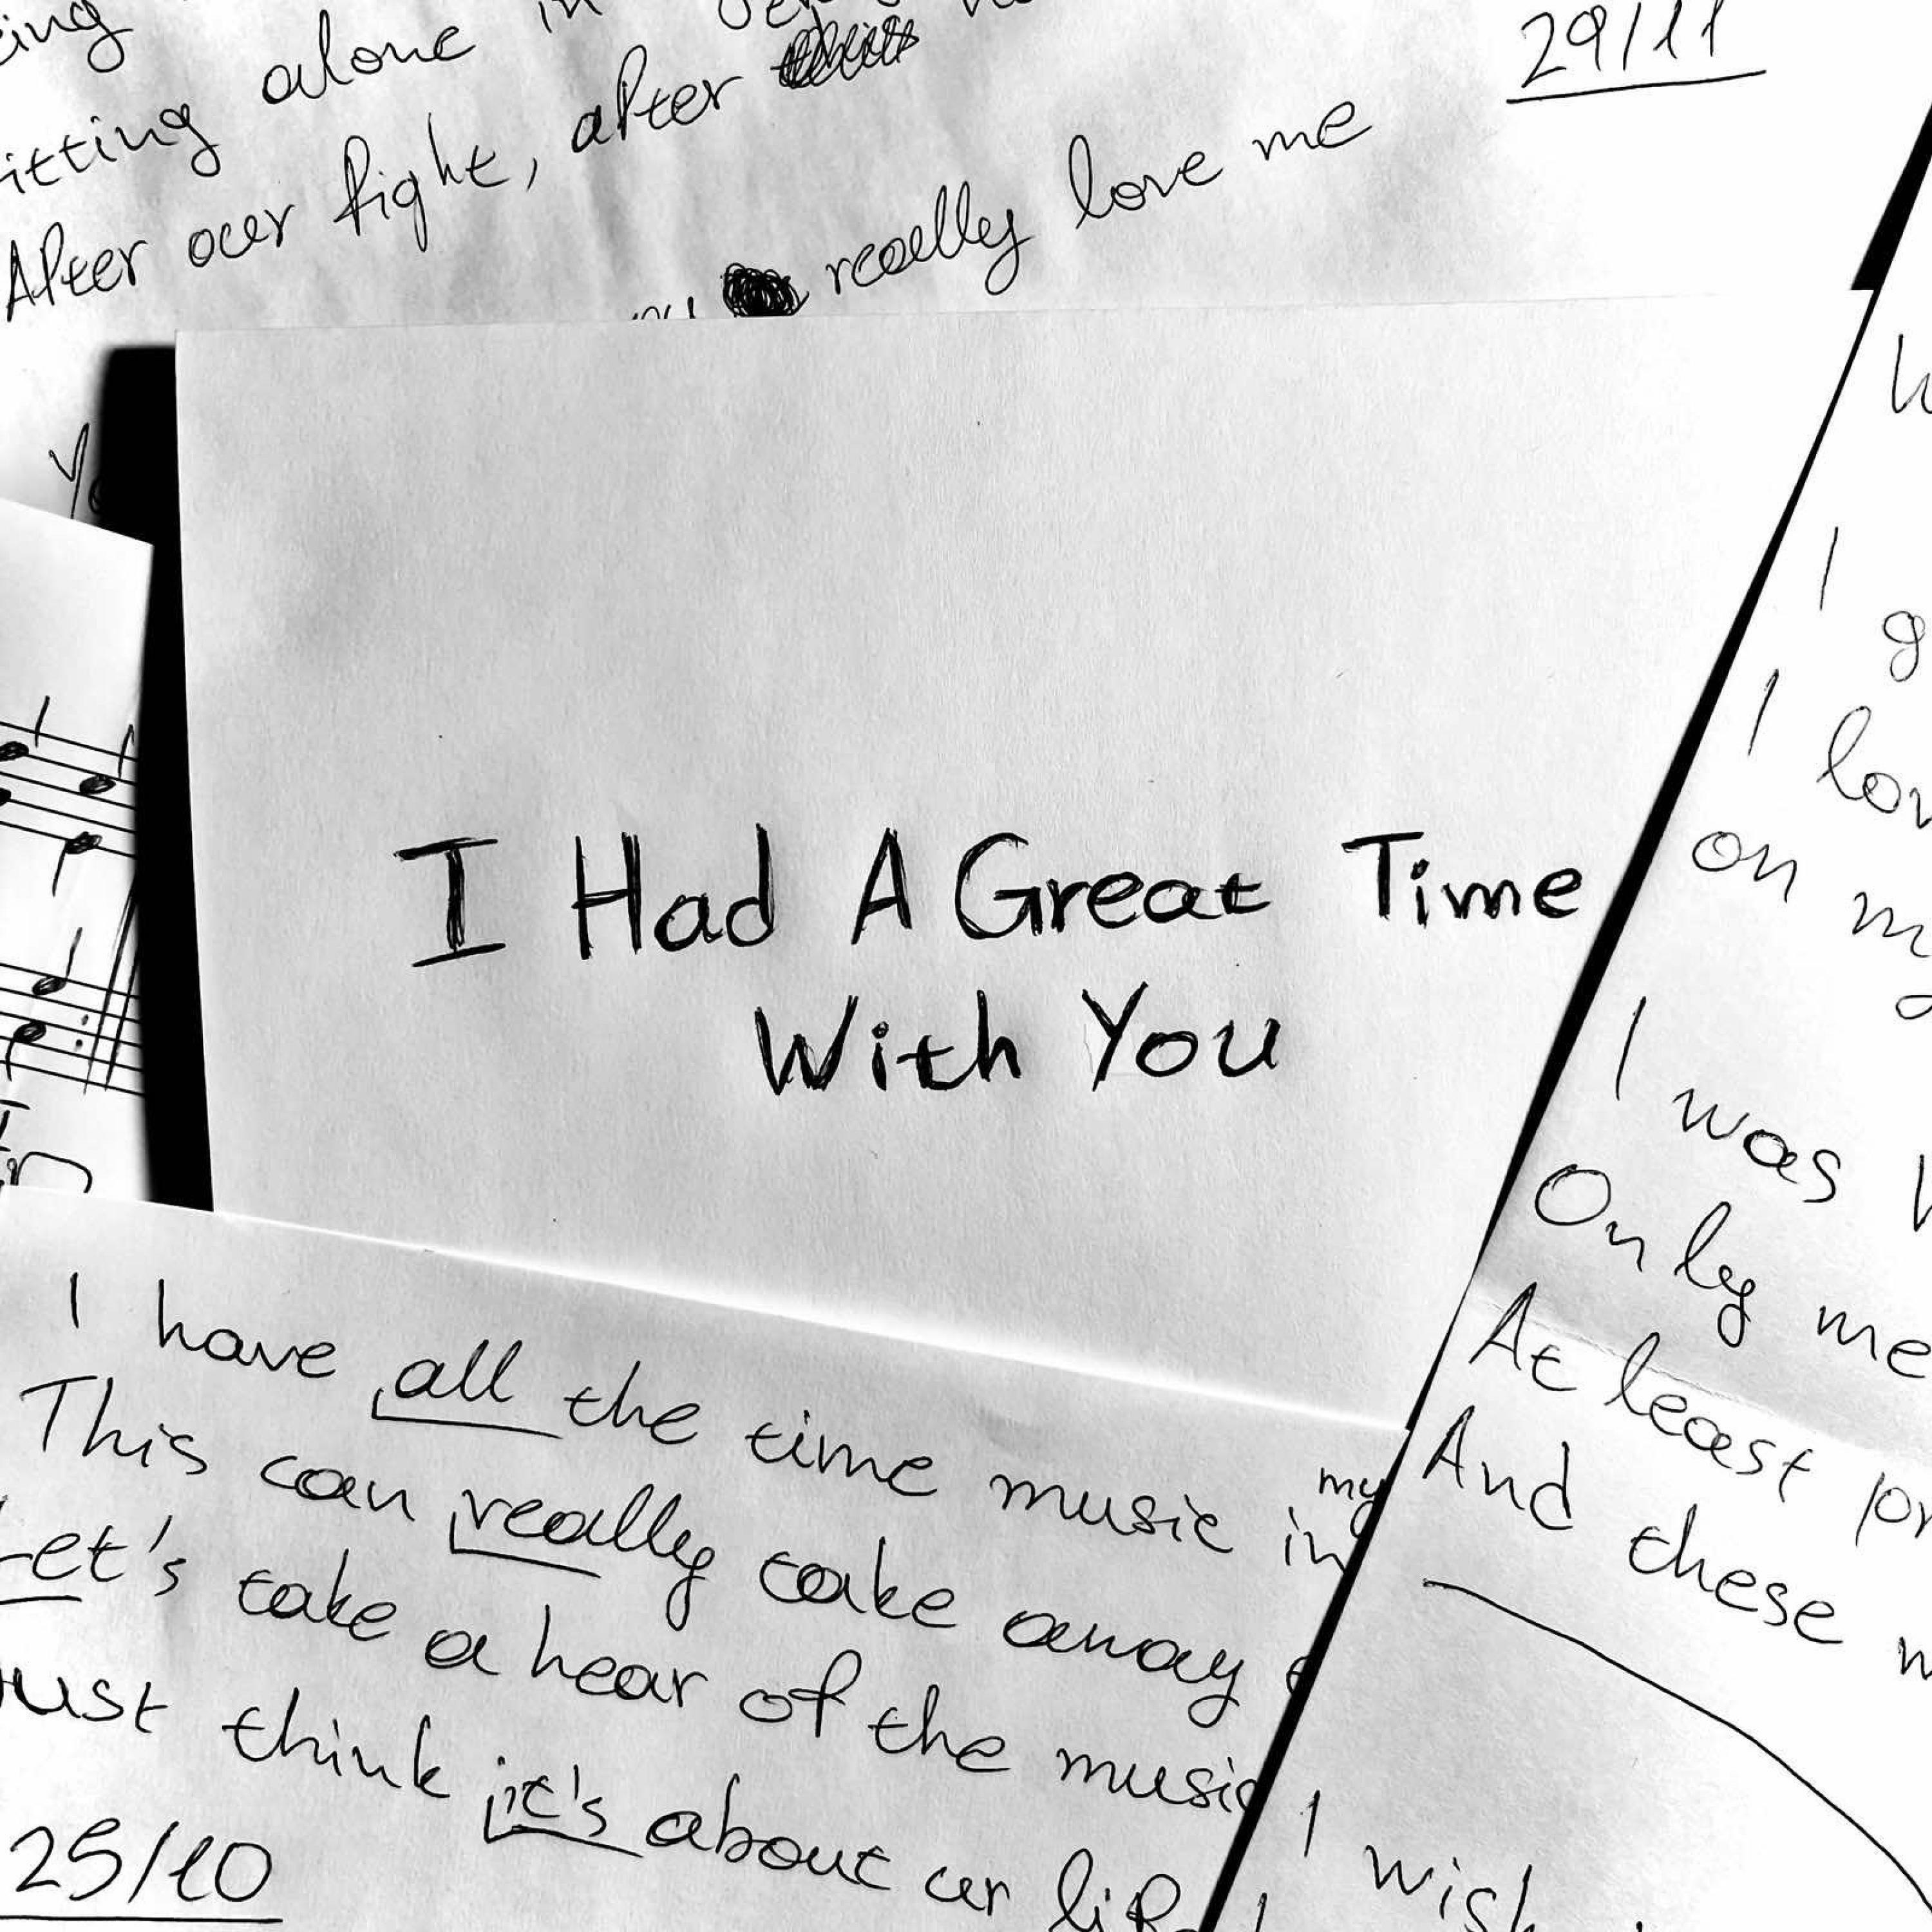 alone in
itting
After our fight, after
really love me
29/11
I Had A Great Time
With You
I have all the time music in my
This can really take away
Let's take a hear of the music
ust think it's about ur life
25/10
I
I
lov
on
I was
Only me
At least
And these
I wish